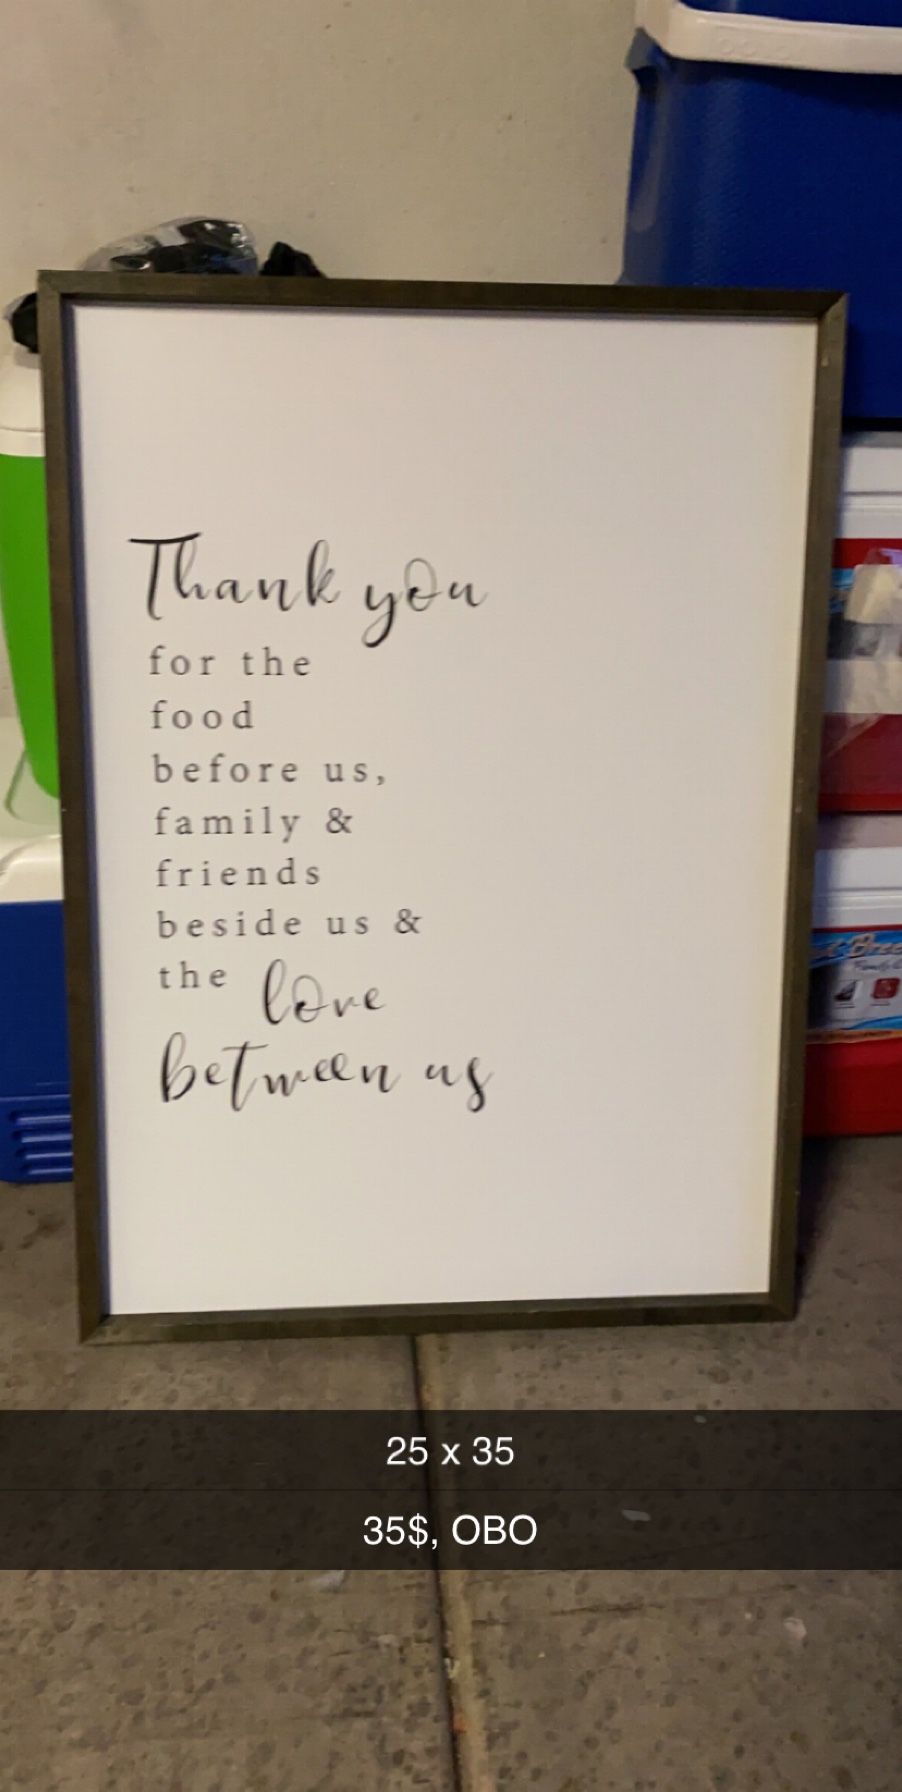 Thank you
for the
food
before us,
family &
friends
beside us &
the love
between us
25 x 35
35$, OBO